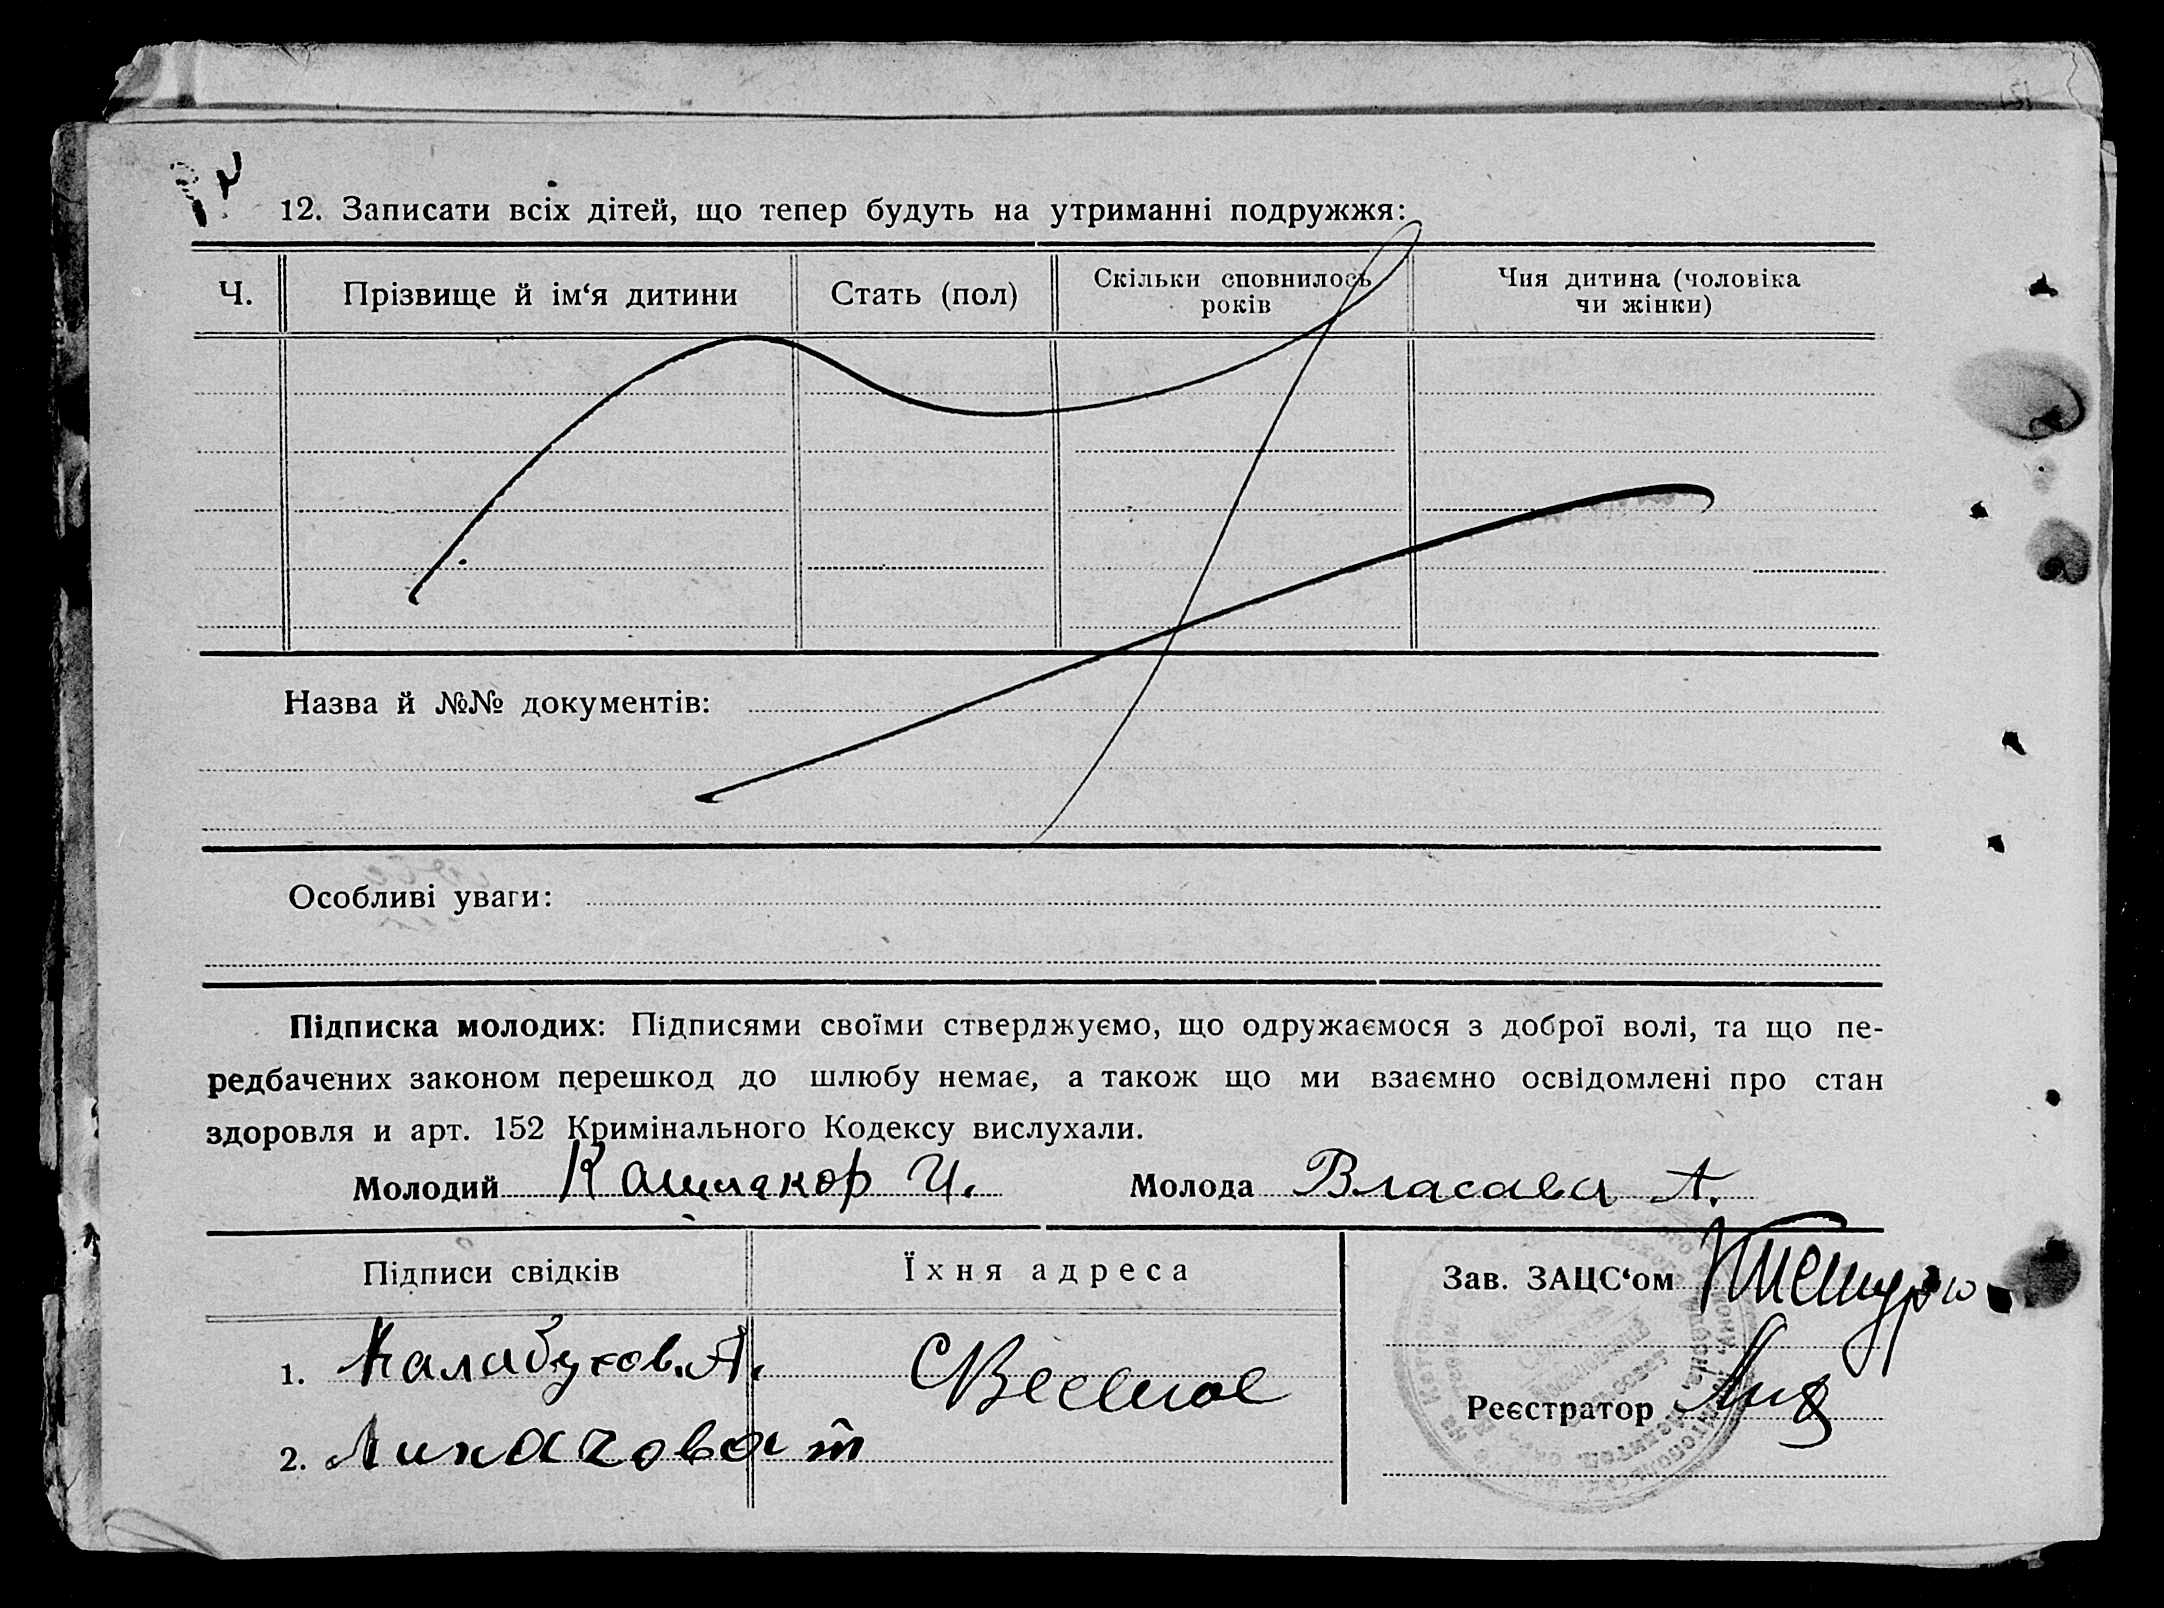 12. Записати всіх дітей, що тепер будуть на утриманні подружжя:
Ч. Прізвище й ім‘я дитини Стать (пол) Скільки сповнилось років Чия дитина (чоловіка чи жінки)
Назва й №№ документів:
Особливі уваги:
Підписка молодих: Підписями своїми стверджуємо, що одружаємося з доброї волі, та що пе-
редбачених законом перешкод до шлюбу немає, а також що ми взаємно освідомлені про стан
здоровля и арт. 152 Кримінального Кодексу вислухали.
Молодий И. Молода Власава А.
Підписи свідків Їхня адреса Зав. ЗАЦС‘ом
1. Калабухов. А. С Веселое
Реєстратор
2. Лихачова т